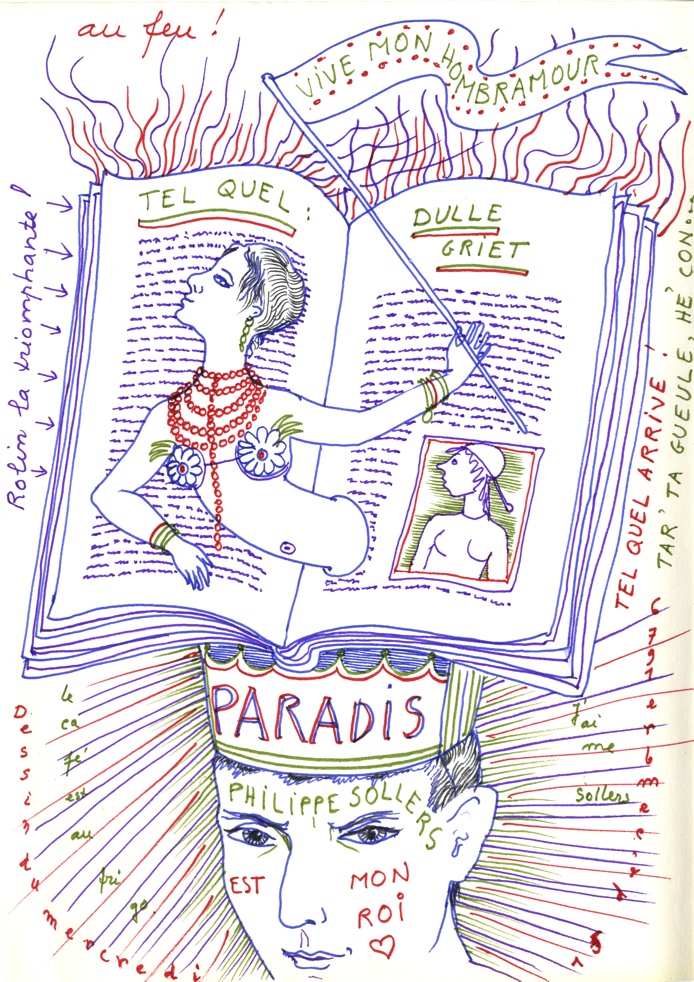 au feu !
VIVE MON HOMBRAMOUR
TEL QUEL :
DULLE
GRIET
Rolin la triomphante !
TEL QUEL ARRIVE !
TAR' TA GUEULE, HÉ CON...
PARADIS
PHILIPPE SOLLERS
EST
MON
ROI
le
ca
fé
est
au
fri
go.
J'ai
me
sollers
Dessin du mercredi
15 décembre 1976